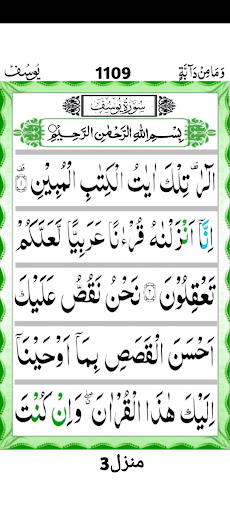 يُوْسُف 1109 وَمَا مِنْ دَآبَّةٍ
سُوْرَةُ يُوْسُفَ
بِسْمِ اللّٰهِ الرَّحْمٰنِ الرَّحِيْمِ
الٓرٰ ۫ تِلْكَ اٰيٰتُ الْكِتٰبِ الْمُبِيْنِ ۟ۙ ۱
اِنَّاۤ اَنْزَلْنٰهُ قُرْءٰنًا عَرَبِيًّا لَّعَلَّكُمْ
تَعْقِلُوْنَ ۲ نَحْنُ نَقُصُّ عَلَيْكَ
اَحْسَنَ الْقَصَصِ بِمَاۤ اَوْحَيْنَاۤ
اِلَيْكَ هٰذَا الْقُرْاٰنَ ۖۗ وَاِنْ كُنْتَ
منزل3